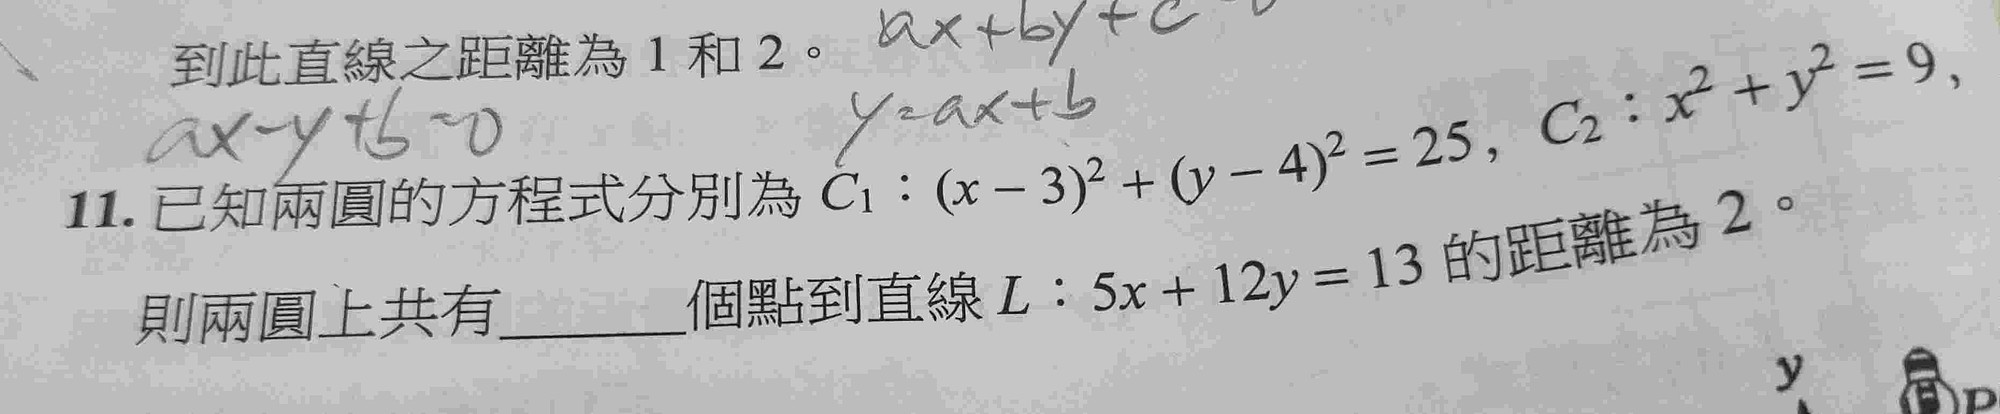 到此直線之距離為 1 和 2。 ax+by+c
ax-y+b=0 y=ax+b
11. 已知兩圓的方程式分別為 C₁：(x − 3)² + (y − 4)² = 25，C₂：x² + y² = 9，
則兩圓上共有______個點到直線 L：5x + 12y = 13 的距離為 2。
y
P